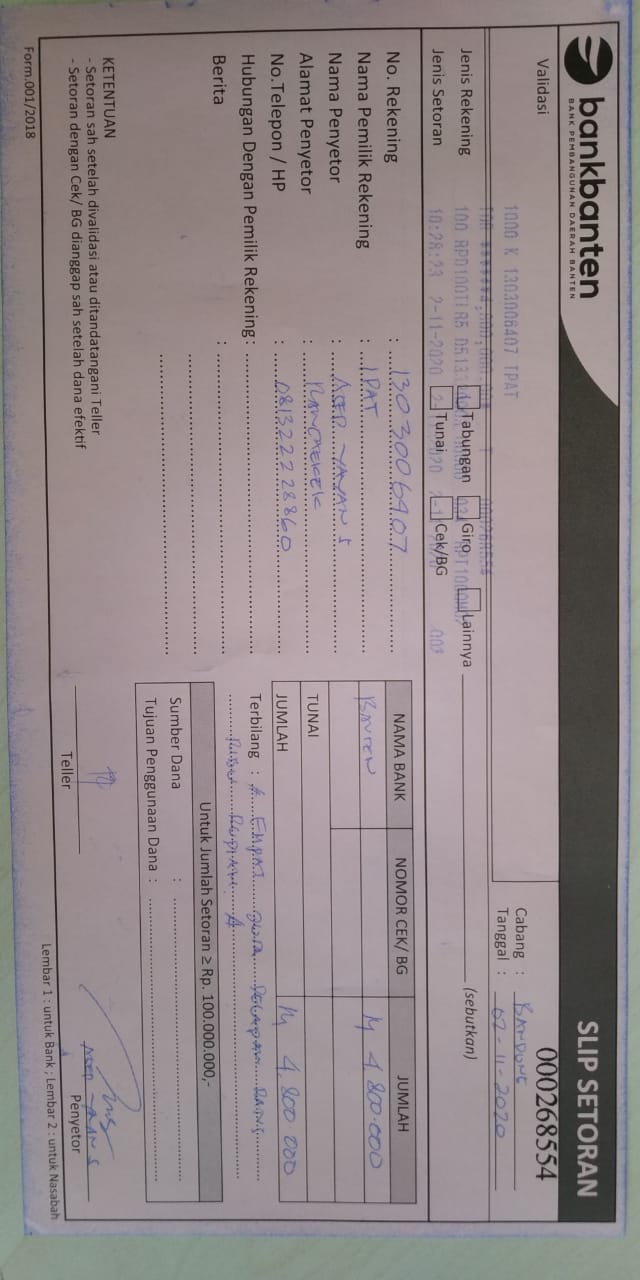 bankbanten
BANK PEMBANGUNAN DAERAH BANTEN
SLIP SETORAN
000268554
Validasi
1000 K 1303006407 TPAT
Cabang : BANDUNG
Tanggal : 02-11-2020
Jenis Rekening Tabungan Giro Lainnya (sebutkan)
Jenis Setoran Tunai Cek/BG
10:28:23 2-11-2020
No. Rekening : 1303006407
Nama Pemilik Rekening : TPAT
Nama Penyetor : ASEP YAYAN S
Alamat Penyetor :
No.Telepon / HP : 081322228860
Hubungan Dengan Pemilik Rekening :
Berita :
NAMA BANK NOMOR CEK/ BG JUMLAH
BANTEN 4 800.000
TUNAI
JUMLAH 4 800 000
Terbilang : EMPAT JUTA DELAPAN RATUS
RUPIAH
Untuk Jumlah Setoran ≥ Rp. 100.000.000,-
Sumber Dana :
Tujuan Penggunaan Dana :
KETENTUAN
- Setoran sah setelah divalidasi atau ditandatangani Teller
- Setoran dengan Cek/ BG dianggap sah setelah dana efektif
Teller
Penyetor
Form.001/2018
Lembar 1 : untuk Bank ; Lembar 2 : untuk Nasabah